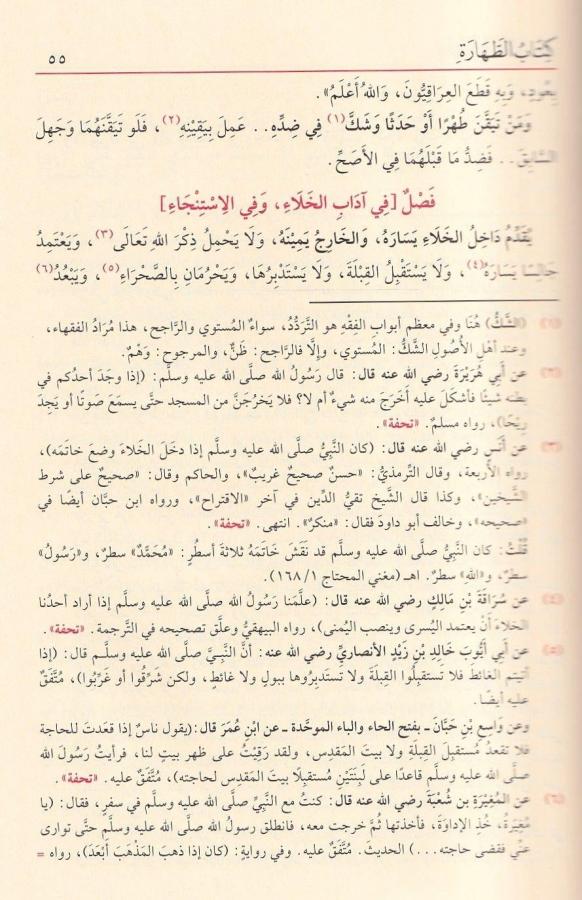 كِتَابُ الطَّهَارَةِ ٥٥
يَعُودُ، وَبِهِ قَطَعَ العِرَاقِيُّونَ، وَاللهُ أَعْلَمُ».
وَمَنْ تَيَقَّنَ طُهْرًا أَوْ حَدَثًا وَشَكَّ(١) فِي ضِدِّهِ.. عَمِلَ بِيَقِينِهِ(٢)، فَلَو تَيَقَّنَهُمَا وَجَهِلَ
السَّابِقَ.. فَضِدُّ مَا قَبْلَهُمَا فِي الأَصَحِّ.
فَصْلٌ [فِي آدَابِ الخَلَاءِ، وَفِي الِاسْتِنْجَاءِ]
يُقَدِّمُ دَاخِلُ الخَلَاءِ يَسَارَهُ، وَالخَارِجُ يَمِينَهُ، وَلَا يَحْمِلُ ذِكْرَ اللهِ تَعَالَى(٣)، وَيَعْتَمِدُ
جَالِسًا يَسَارَهُ(٤)، وَلَا يَسْتَقْبِلُ القِبْلَةَ، وَلَا يَسْتَدْبِرُهَا، وَيَحْرُمَانِ بِالصَّحْرَاءِ(٥)، وَيَبْعُدُ(٦)
(١) (الشَّكُّ) هُنَا وفي معظم أبوابِ الفِقْهِ هو التَّرَدُّدُ، سواءٌ المُستوي والرَّاجح، هذا مُرَادُ الفقهاء،
وعند أهلِ الأُصُولِ الشَّكُّ: المُستوي، وإلَّا فالرَّاجح: ظَنٌّ، والمرجوح: وَهْمٌ.
(٢) عن أَبِي هُرَيْرَةَ رضي الله عنه قال: قال رَسُولُ اللهِ صلَّى الله عليه وسلَّم: (إذا وَجَدَ أحدُكم في
بطنه شيئًا فأشكَلَ عليه أَخَرَجَ منه شيءٌ أم لا؟ فلا يَخرُجَنَّ من المسجد حتَّى يسمَعَ صَوتًا أو يَجِدَ
رِيحًا)، رواه مسلمٌ. «تحفة».
(٣) عن أَنَسٍ رضي الله عنه قال: (كان النَّبِيُّ صلَّى الله عليه وسلَّم إذا دخَلَ الخَلاءَ وضعَ خاتمَه)،
رواه الأربعة، وقال التِّرمذيُّ: «حسنٌ صحيحٌ غريبٌ»، والحاكم وقال: «صحيحٌ على شرط
الشَّيخين»، وكذا قال الشَّيخ تقيُّ الدِّين في آخر «الاقتراح»، ورواه ابن حبَّان أيضًا في
«صحيحه»، وخالف أبو داودَ فقال: «منكرٌ». انتهى. «تحفة».
قُلْتُ: كان النَّبيُّ صلَّى الله عليه وسلَّم قد نَقَشَ خَاتَمَهُ ثلاثةَ أسطُرٍ: «مُحَمَّدٌ» سطرٌ، و«رَسُولُ»
سطرٌ، و«الله» سطرٌ. اهـ (مغني المحتاج ١/١٦٨).
(٤) عن سُرَاقَةَ بْنِ مَالِكٍ رضي الله عنه قال: (علَّمنا رَسُولُ اللهِ صلَّى الله عليه وسلَّم إذا أراد أحدُنا
الخلاءَ أنْ يعتمد اليُسرى وينصب اليُمنى)، رواه البيهقيُّ وعلَّق تصحيحه في التَّرجمة. «تحفة».
(٥) عن أَبِي أَيُّوبَ خَالِدِ بْنِ زَيْدٍ الأنصاريِّ رضي الله عنه: أنَّ النَّبيَّ صلَّى الله عليه وسلَّم قال: (إذا
أتيتم الغائطَ فلا تستقبِلُوا القِبلةَ ولا تستدبِرُوها ببولٍ ولا غائطٍ، ولكن شرِّقُوا أو غَرِّبُوا)، مُتَّفَقٌ
عليه أيضًا.
وعن وَاسِعِ بْنِ حَبَّانَ ـ بفتح الحاء والباء الموحَّدة ـ عن ابْنِ عُمَرَ قال: (يقول ناسٌ إذا قعدَتَ للحاجة
فلا تقعدْ مُستقبِلَ القِبلةِ ولا بيتَ المَقدِسِ، ولقد رَقِيْتُ على ظهرِ بيتٍ لنا، فرأيتُ رسولَ الله
صلَّى الله عليه وسلَّم قاعدًا على لَبِنَتَيْنِ مُستقبِلًا بيتَ المَقدِس لحاجته)، مُتَّفَقٌ عليه. «تحفة».
(٦) عن المُغِيْرَةِ بن شُعْبَةَ رضي الله عنه قال: كنتُ مع النَّبيِّ صلَّى الله عليه وسلَّم في سفرٍ، فقال: (يا
مُغيْرَةُ، خُذِ الإداوَةَ، فأخذتها ثُمَّ خرجت معه، فانطلق رسولُ الله صلَّى الله عليه وسلَّم حتَّى توارى
عنِّي فقضى حاجته...) الحديثَ. مُتَّفَقٌ عليه. وفي روايةٍ: (كان إذا ذهبَ المَذْهَبَ أَبعَدَ)، رواه =